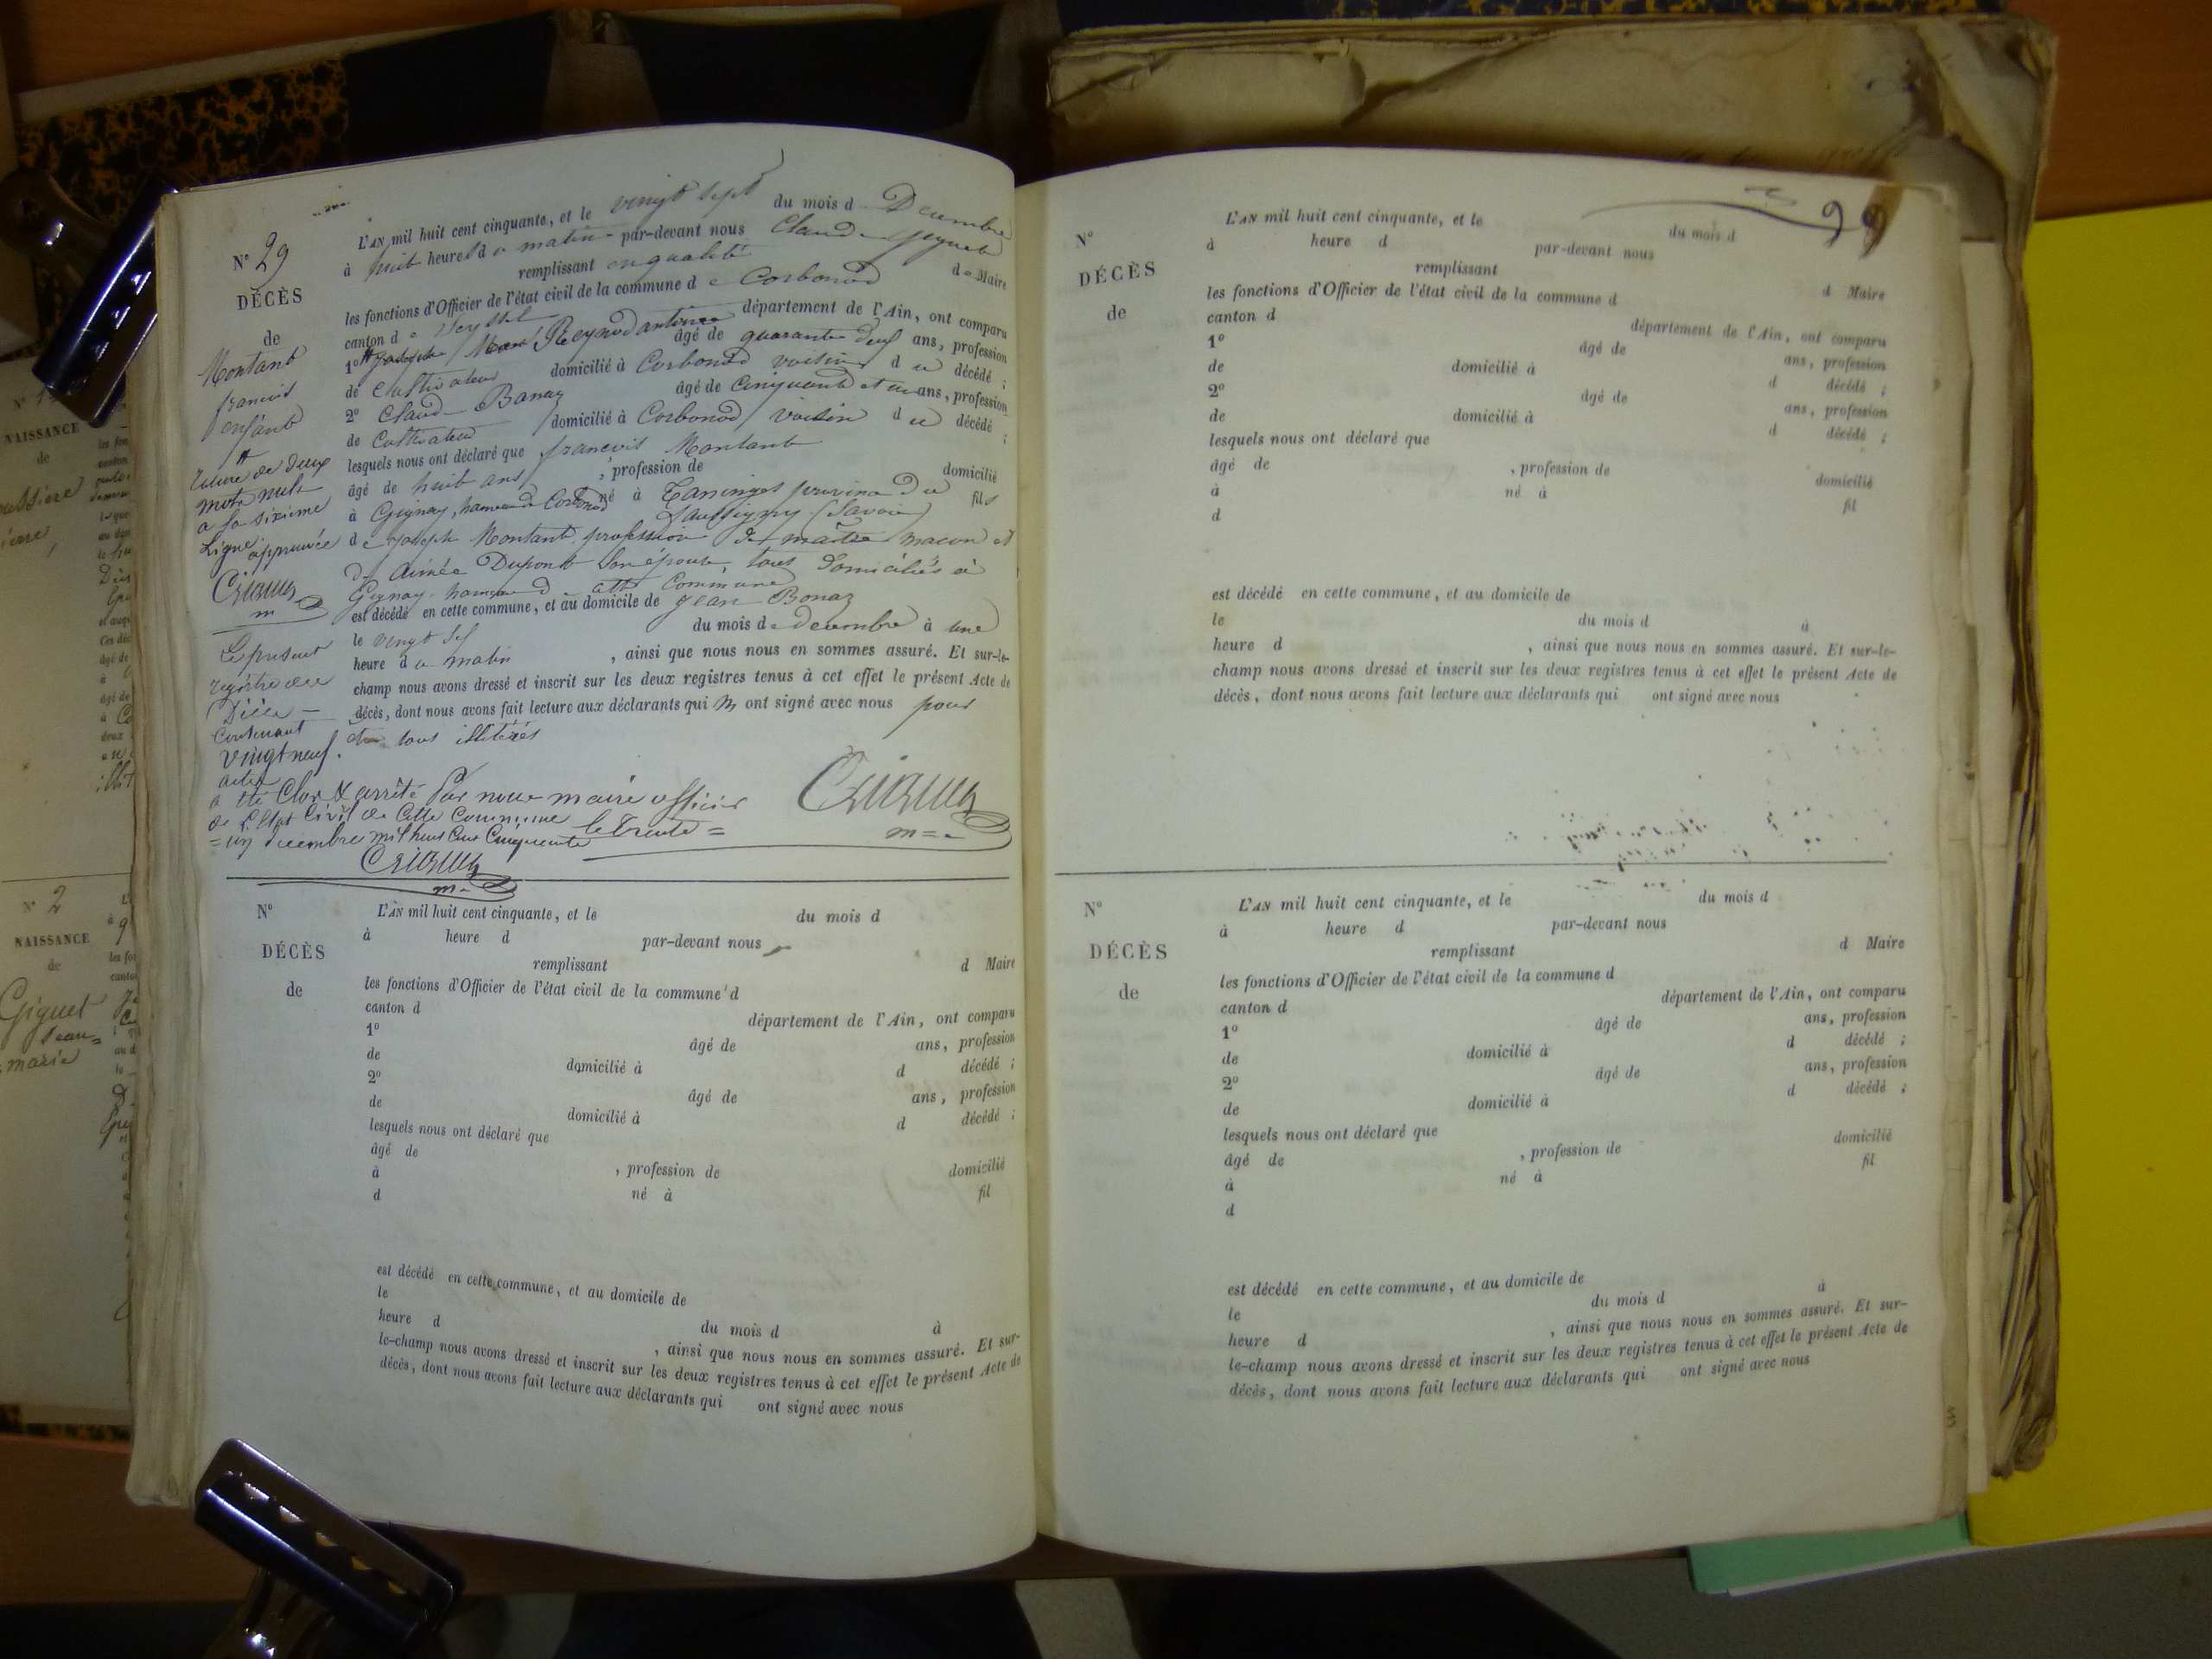 N° 29
DÉCÈS
de
Montant
francois
enfant
rature de deux
mots nuls
a la sixieme
Ligne appruvée
m
Le present
registre des
Décès
Contenant
vingt neuf
actes
L'AN mil huit cent cinquante, et le vingt sept du mois de Decembre
à huit heures du matin par-devant nous Claude
remplissant en qualité de Maire
les fonctions d'Officier de l'état civil de la commune de Corbonod
canton de Seyssel département de l'Ain, ont comparu
1° Reynod antoine âgé de quarante ans, profession
de Cultivateur domicilié à Corbonod voisin du décédé ;
2° Claude Banaz âgé de Cinquante et un ans, profession
de Cultivateur domicilié à Corbonod voisin du décédé ;
lesquels nous ont déclaré que francois Montant
âgé de huit ans, profession de domicilié
à Gignay, hameau de Corbonod né à Taninges province du fils
faussigny (Savoie)
de joseph Montant profession de maitre macon et
d' Aimée Dupont son épouse, tous domiciliés à
Gignay hameau de cette Commune
est décédé en cette commune, et au domicile de jean Bonaz
le vingt sept du mois de decembre à une
heure du matin, ainsi que nous nous en sommes assuré. Et sur-le-
champ nous avons dressé et inscrit sur les deux registres tenus à cet effet le présent Acte de
décès, dont nous avons fait lecture aux déclarants qui n ont signé avec nous pour
être tous illitérés
a été Clos & arrêté Par nous maire officier
de l'Etat Civil de Cette Commune le Trente =
= un Decembre mil huit Cent Cinquante
m
N°
DÉCÈS
de
L'AN mil huit cent cinquante, et le du mois d
à heure d par-devant nous
remplissant d Maire
les fonctions d'Officier de l'état civil de la commune d
canton d département de l'Ain, ont comparu
1° âgé de ans, profession
de domicilié à d décédé ;
2° âgé de ans, profession
de domicilié à d décédé ;
lesquels nous ont déclaré que
âgé de , profession de domicilié
à né à fil
d
est décédé en cette commune, et au domicile de
le du mois d à
heure d , ainsi que nous nous en sommes assuré. Et sur-
le-champ nous avons dressé et inscrit sur les deux registres tenus à cet effet le présent Acte de
décès, dont nous avons fait lecture aux déclarants qui ont signé avec nous
N°
DÉCÈS
de
L'AN mil huit cent cinquante, et le du mois d
à heure d par-devant nous
remplissant d Maire
les fonctions d'Officier de l'état civil de la commune d
canton d département de l'Ain, ont comparu
1° âgé de ans, profession
de domicilié à d décédé ;
2° âgé de ans, profession
de domicilié à d décédé ;
lesquels nous ont déclaré que
âgé de , profession de domicilié
à né à fil
d
est décédé en cette commune, et au domicile de
le du mois d à
heure d , ainsi que nous nous en sommes assuré. Et sur-le-
champ nous avons dressé et inscrit sur les deux registres tenus à cet effet le présent Acte de
décès, dont nous avons fait lecture aux déclarants qui ont signé avec nous
N°
DÉCÈS
de
L'AN mil huit cent cinquante, et le du mois d
à heure d par-devant nous
remplissant d Maire
les fonctions d'Officier de l'état civil de la commune d
canton d département de l'Ain, ont comparu
1° âgé de ans, profession
de domicilié à d décédé ;
2° âgé de ans, profession
de domicilié à d décédé ;
lesquels nous ont déclaré que
âgé de , profession de domicilié
à né à fil
d
est décédé en cette commune, et au domicile de
le du mois d à
heure d , ainsi que nous nous en sommes assuré. Et sur-
le-champ nous avons dressé et inscrit sur les deux registres tenus à cet effet le présent Acte de
décès, dont nous avons fait lecture aux déclarants qui ont signé avec nous
NAISSANCE
de
N° 2
NAISSANCE
de
Giguet
Jean=
marie